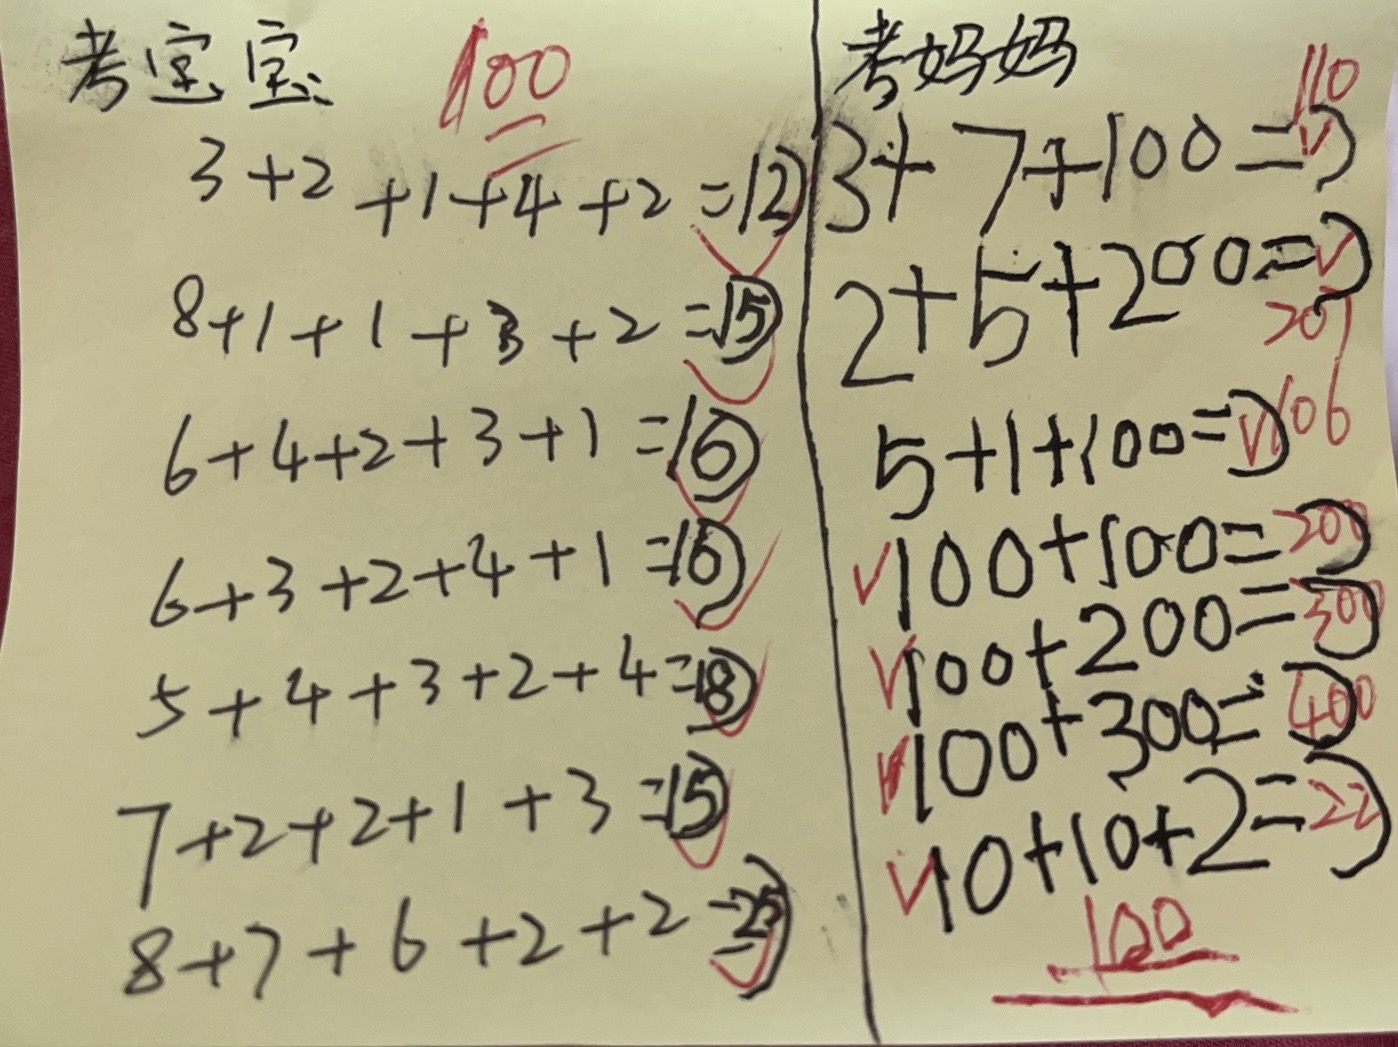 考宝宝 100
3+2+1+4+2=12)
8+1+1+3+2=15)
6+4+2+3+1=16)
6+3+2+4+1=16)
5+4+3+2+4=18)
7+2+2+1+3=15)
8+7+6+2+2=25)
考妈妈
3+7+100=) 110
2+5+200=) 207
5+1+100=) 106
100+100=200)
100+200=300)
100+300=400)
10+10+2=22)
100